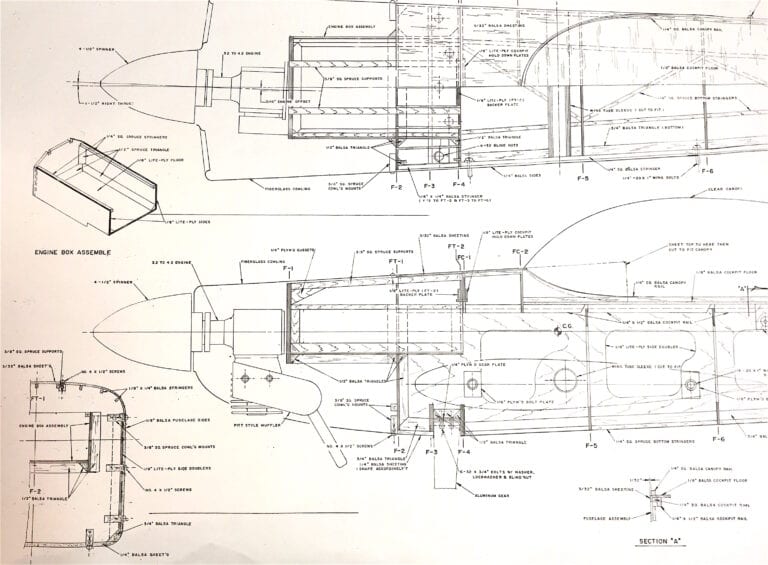 ENGINE BOX ASSEMBLY
4-1/2" SPINNER
3.2 TO 4.2 ENGINE
3/32 BALSA SHEETING
1/4" SQ. BALSA CANOPY RAIL
1/8" LITE-PLY COCKPIT
HOLD DOWN PLATES
1/8" BALSA COCKPIT FLOOR
3/8" SQ. SPRUCE SUPPORTS
ENGINE OFFSET
1/8" LITE-PLY (FT-2)
BACKER PLATE
1/4" SQ. SPRUCE BOTTOM STRINGERS
WING TUBE SLEEVE ( CUT TO FIT )
3/4" BALSA TRIANGLE (BOTTOM)
1/2" BALSA TRIANGLE
BLIND NUTS
1/2" BALSA TRIANGLES
FIBERGLASS COWLING
3/8" SQ. SPRUCE
COWL'S MOUNTS
F-2
F-3
F-4
1/4" BALSA SIDES
1/4" SQ. BALSA STRINGER
F-5
WING BOLTS
F-6
1/4" X 1/4" BALSA STRINGER
1/4" SQ. SPRUCE STRINGERS
1/2" SPRUCE TRIANGLE
1/8" LITE-PLY FLOOR
1/8" LITE-PLY SIDES
ENGINE BOX ASSEMBLE
CLEAR CANOPY
3/32" BALSA SHEETING
1/8" LITE-PLY COCKPIT
HOLD DOWN PLATES
1/4" PLY'D GUSSETS
3/8" SQ. SPRUCE SUPPORTS
FT-1
FT-2
FC-1
FC-2
SHEET TOP TO HERE THEN
CUT TO FIT CANOPY
3.2 TO 4.2 ENGINE
FIBERGLASS COWLING
F-1
1/8" BALSA COCKPIT FLOOR
4-1/2" SPINNER
1/8" LITE-PLY (FT-2)
BACKER PLATE
1/4" SQ. BALSA CANOPY
RAIL
"A"
1/4" X 1/2" BALSA COCKPIT RAIL
C.G.
1/8" LITE-PLY SIDE DOUBLER
1/2" BALSA TRIANGLES
1/4" PLY'D GEAR PLATE
WING TUBE SLEEVE ( CUT TO FIT )
1/8" PLY'D BOLT PLATE
3/8" SQ. SPRUCE
COWL'S MOUNTS
PITT STYLE MUFFLER
NO. 4 X 1/2" SCREWS
F-2
F-3
F-4
1/2" BALSA TRIANGLE
F-5
1/4" SQ. SPRUCE BOTTOM STRINGERS
F-6
3/4" BALSA TRIANGLE
1/4" BALSA SHEETING
( SHAPE ACCORDINGLY )
X 3/4" BOLTS W/ WASHER,
LOCKWASHER & BLIND NUT
ALUMINUM GEAR
3/8" SQ. SPRUCE SUPPORTS
NO. 4 X 1/2" SCREWS
3/32" BALSA SHEET'G
FT-1
1/4" BALSA STRINGERS
1/4" BALSA FUSELAGE SIDES
ENGINE BOX ASSEMBLY
3/8" SQ. SPRUCE COWL'S MOUNTS
1/8" LITE-PLY SIDE DOUBLERS
F-2
1/2" BALSA TRIANGLES
NO. 4 X 1/2" SCREWS
3/4" BALSA TRIANGLE
1/4" BALSA SHEET'G
1/4" SQ. BALSA CANOPY RAIL
1/8" BALSA COCKPIT FLOOR
3/32" BALSA SHEETING
FUSELAGE ASSEMBLY
1/4" X 1/2" BALSA COCKPIT RAIL
SECTION "A"